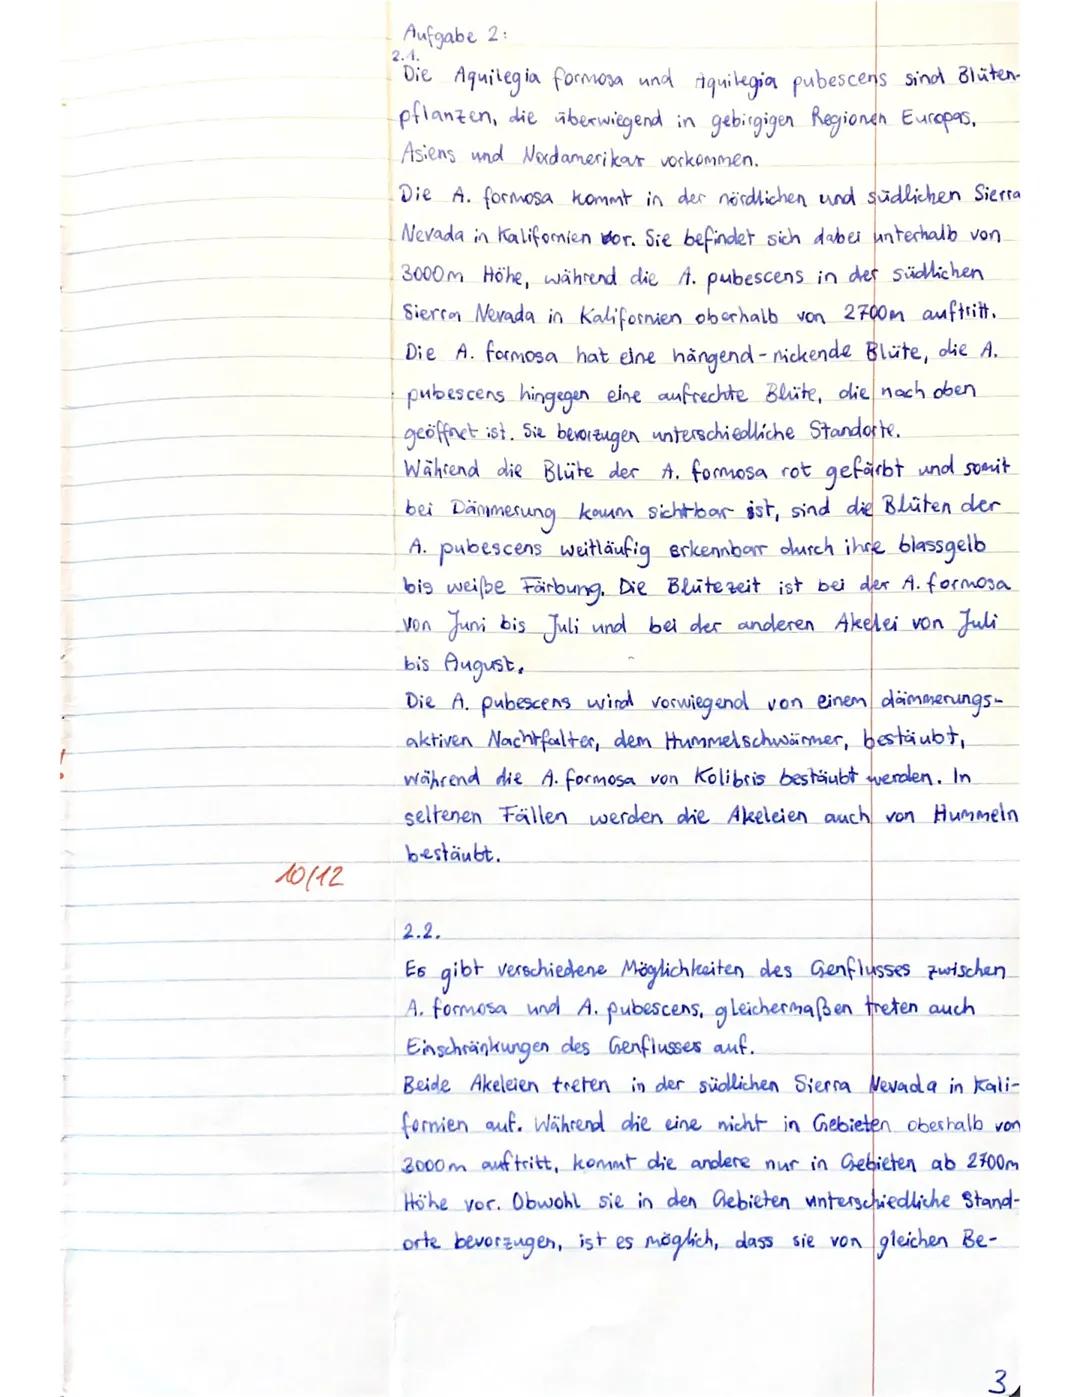 Aufgabe 2:
2.1.
Die Aquilegia formosa und Aquilegia pubescens sind Blüten-
pflanzen, die überwiegend in gebirgigen Regionen Europas,
Asiens und Nordamerikas vorkommen.
Die A. formosa kommt in der nördlichen und südlichen Sierra
Nevada in Kalifornien vor. Sie befindet sich dabei unterhalb von
3000m Höhe, während die A. pubescens in der südlichen
Sierra Nevada in Kalifornien oberhalb von 2700m auftritt.
Die A. formosa hat eine hängend-nickende Blüte, die A.
pubescens hingegen eine aufrechte Blüte, die nach oben
geöffnet ist. Sie bevorzugen unterschiedliche Standorte.
Während die Blüte der A. formosa rot gefärbt und somit
bei Dämmerung kaum sichtbar ist, sind die Blüten der
A. pubescens weitläufig erkennbar durch ihre blassgelb
bis weiße Färbung. Die Blütezeit ist bei der A. formosa
von Juni bis Juli und bei der anderen Akelei von Juli
bis August.
Die A. pubescens wird vorwiegend von einem dämmerungs-
aktiven Nachtfalter, dem Hummelschwärmer, bestäubt,
während die A. formosa von Kolibris bestäubt werden. In
seltenen Fällen werden die Akeleien auch von Hummeln
bestäubt.
10/12
2.2.
Es gibt verschiedene Möglichkeiten des Genflusses zwischen
A. formosa und A. pubescens, gleichermaßen treten auch
Einschränkungen des Genflusses auf.
Beide Akeleien treten in der südlichen Sierra Nevada in Kali-
fornien auf. Während die eine nicht in Gebieten oberhalb von
3000m auftritt, kommt die andere nur in Gebieten ab 2700m
Höhe vor. Obwohl sie in den Gebieten unterschiedliche Stand-
orte bevorzugen, ist es möglich, dass sie von gleichen Be-
3